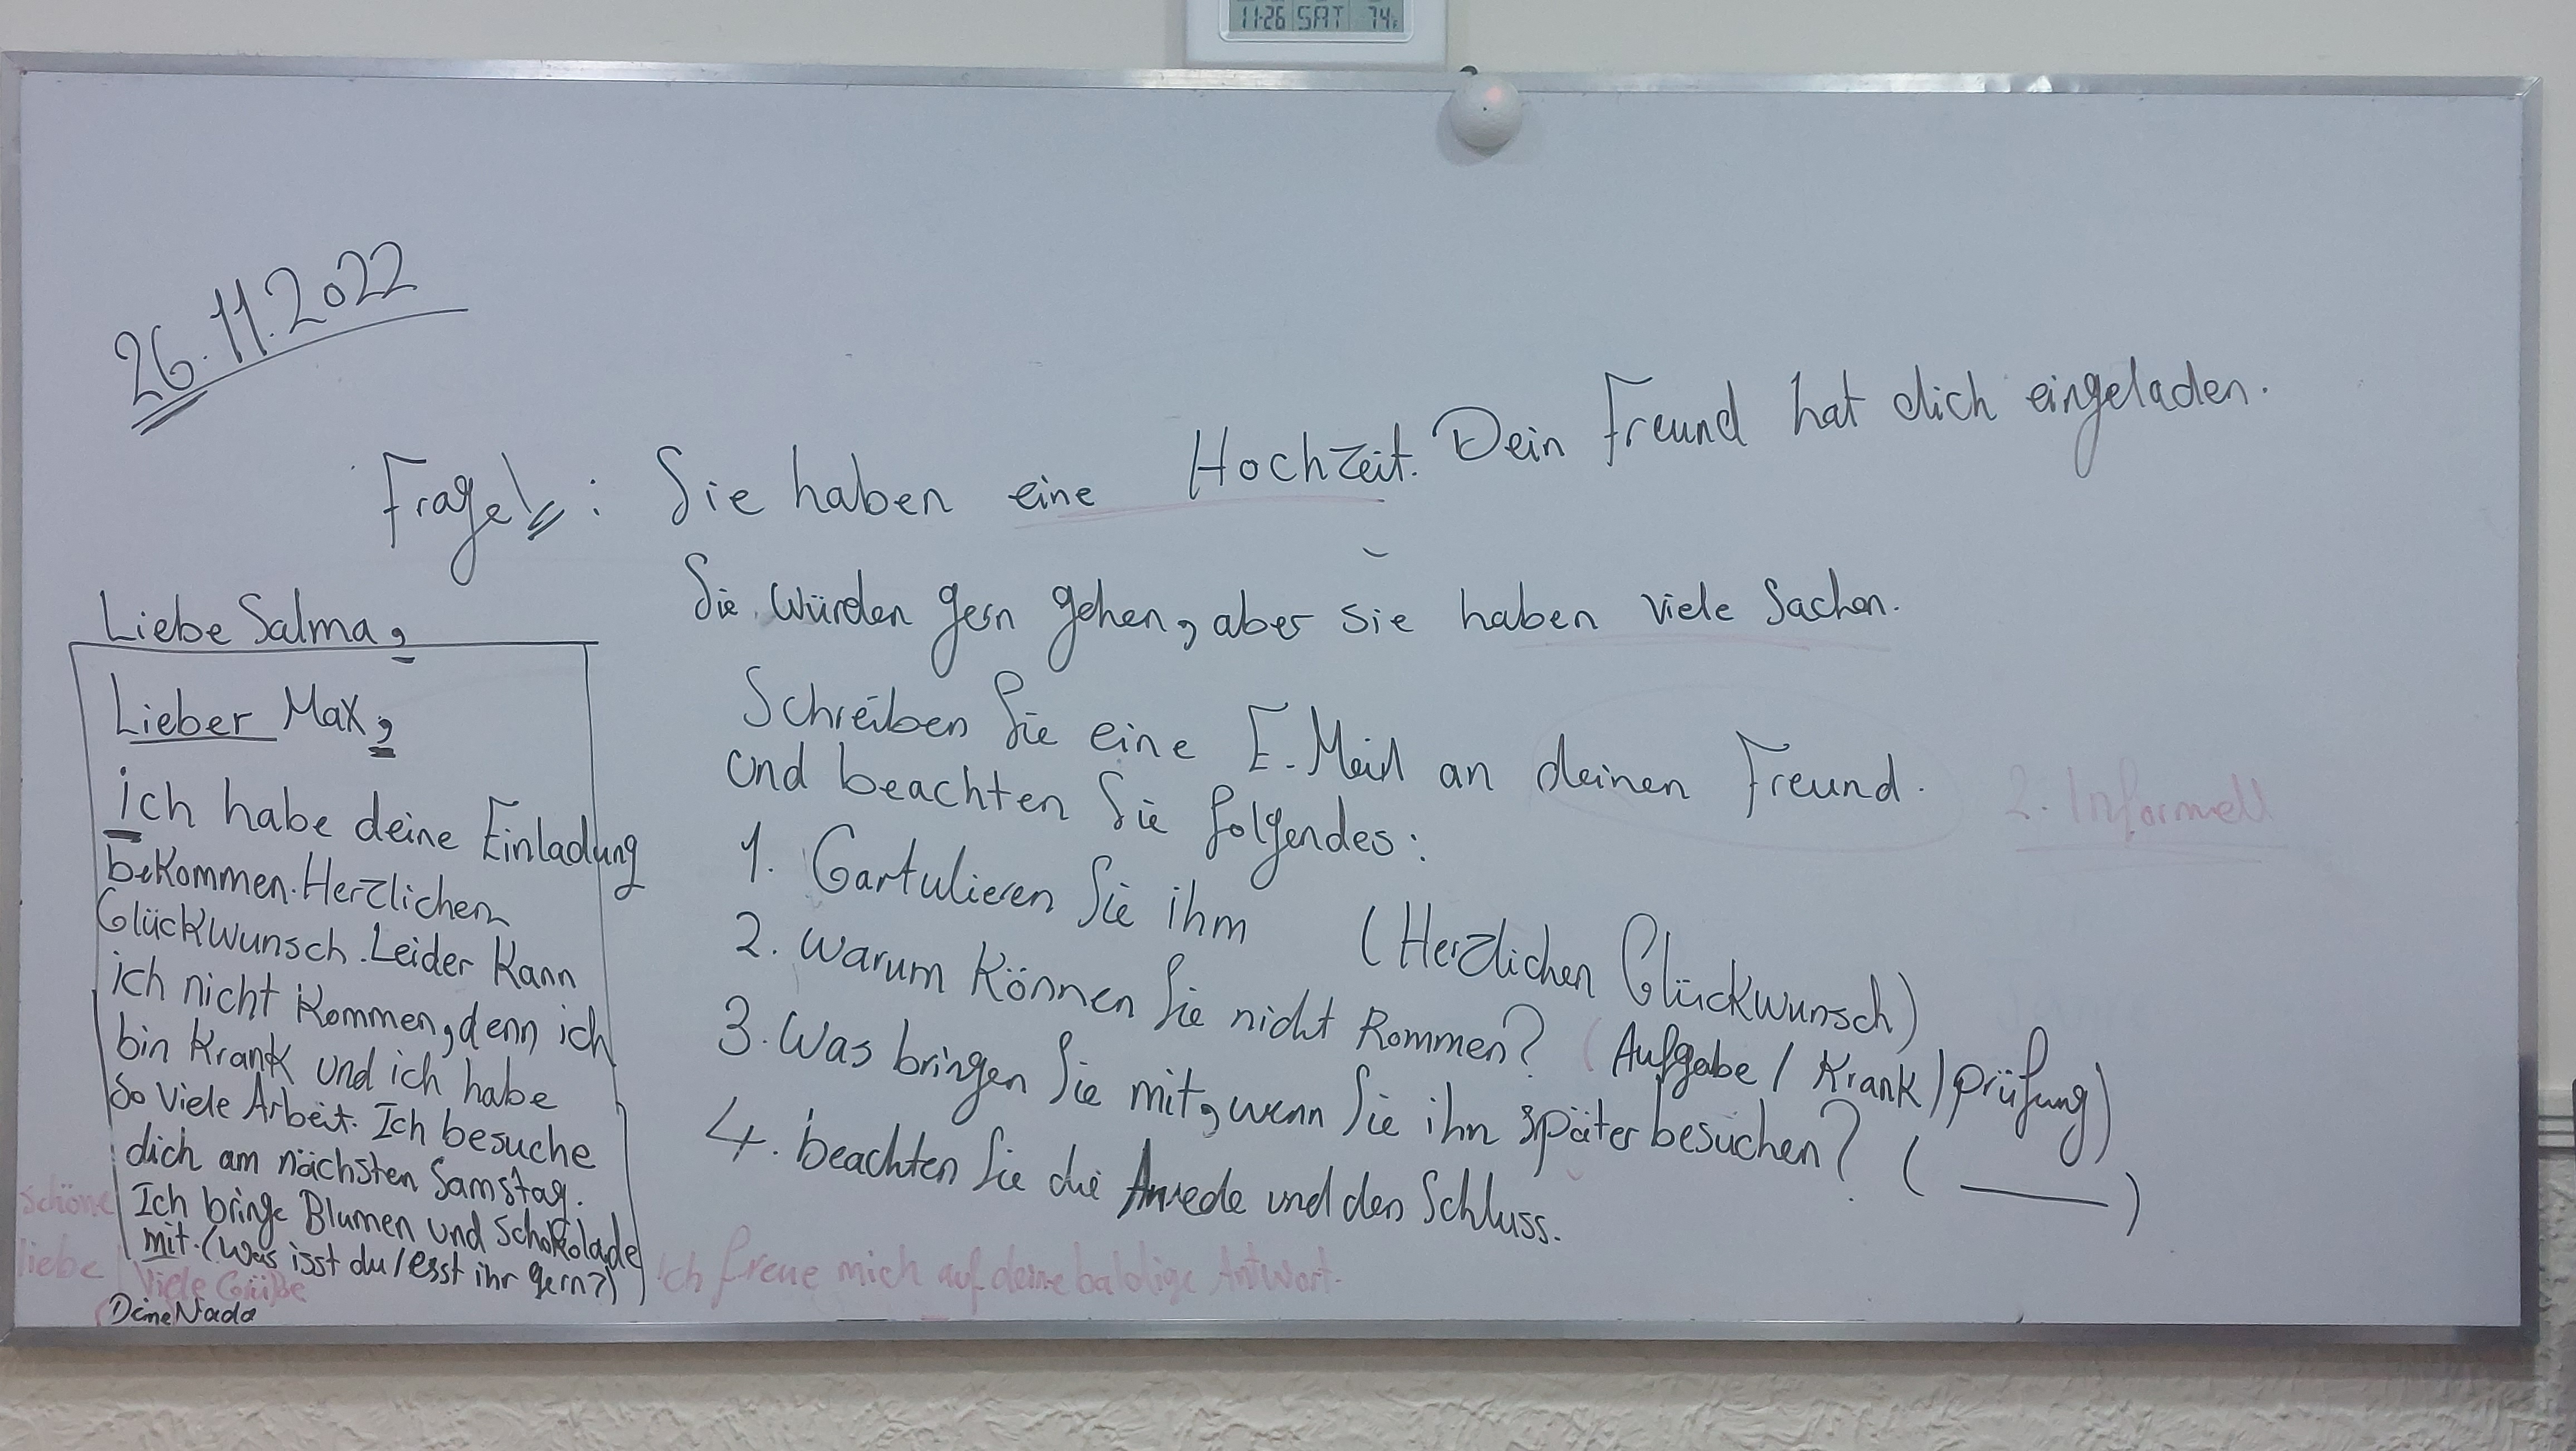 11-26 SAT 74F
26.11.2022
Frage: Sie haben eine Hochzeit. Dein Freund hat dich eingeladen.
Sie würden gern gehen, aber sie haben viele Sachen.
Schreiben Sie eine E-Mail an deinen Freund.
und beachten Sie folgendes:
2. Informell
1. Gartulieren Sie ihm (Herzlichen Glückwunsch)
2. Warum können Sie nicht kommen? (Aufgabe / Krank / Prüfung)
3. Was bringen Sie mit, wenn Sie ihn später besuchen? ( ____ )
4. beachten Sie die Anrede und den Schluss.
Liebe Salma,
Lieber Max,
ich habe deine Einladung
bekommen. Herzlichen
Glückwunsch. Leider kann
ich nicht kommen, denn ich
bin krank und ich habe
so viele Arbeit. Ich besuche
dich am nächsten Samstag.
Ich bringe Blumen und Schokolade
mit. (Was isst du / esst ihr gern?)
Ich freue mich auf deine baldige Antwort.
schöne
liebe
Viele Grüße
Deine Nada